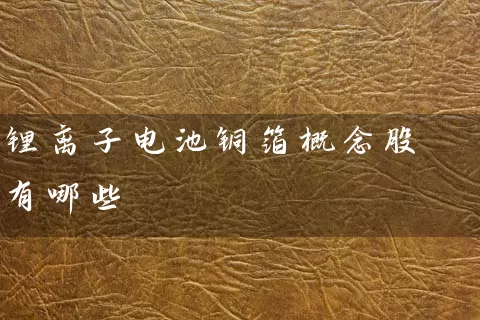 锂离子电池铜箔概念股
有哪些